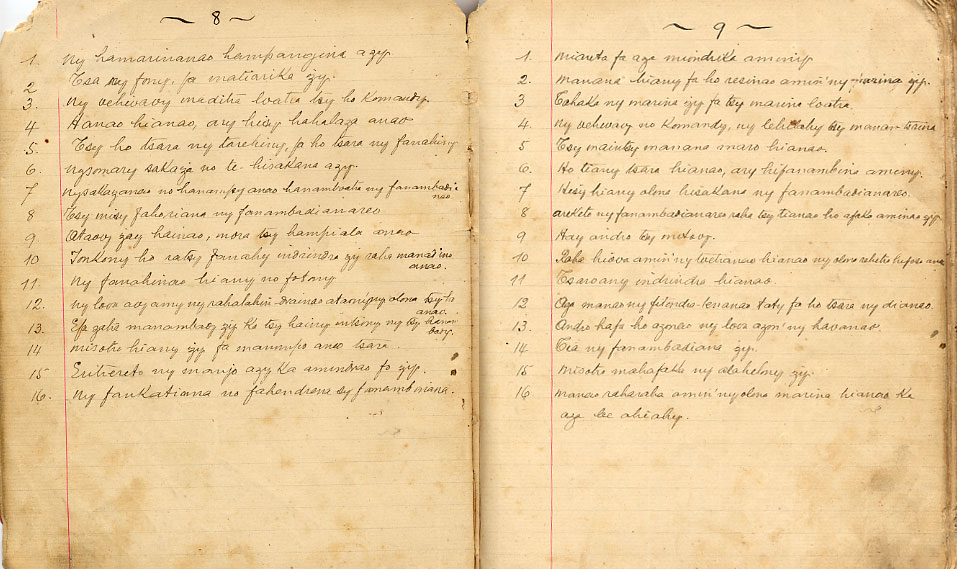 ~ 8 ~
1. Ny hamarinanao hampangina azy.
2 Tsa ny fony, fa matiarika izy.
3. Ny vehivavy maditra loatra tsy ho komandy.
4 Hanao hianao, ary hisy hahalaza anao
5 Tsy ho tsara ny tarehiny, fa ho tsara ny fanahiny
6. Ny sakaiza no te-hisakana azy
7 Ny sakaizanao no hanampy anao hanambatra ny fanambadia
nao
8 Tsy misy fahoriana ny fanambadianareo
9 Ataovy izay hainao, mora tsy hampiala anao
10 Tonkony ho ratsy fanahy indrindra izy raha manadino
anao.
11 Ny fanahinao hiany no fotony
12. Ny loza avy amy ny rahalahin- drainao ataon' ny olona tsy tia
anao.
13. Efa zatra manambady izy ka tsy hainy intsony ny tsy hanam
bady.
14 Misotro hiany izy fa manompo anao tsara.
15 Entereto ny manjo azy ka amindrao fo izy.
16. Ny faukatiana no fahendrena tsy fanambiniana.
~ 9 ~
1. Miauto fa aza miondrika aminy
2. Manana hiany fa ho resinao amin' ny marina izy.
3 Tahaka ny marina izy fa tsy marina loatra
4. Ny vehivavy no komandy, ny lehilahy tsy manan- tsaina
5 Tsy maintsy manana maro hianao.
6. Ho tiany tsara hianao, ary hifanambina aminy.
7 Hisy hiany olona hisakana ny fanambadianareo.
8 ny fanambadianareo raha tsy tianao ho afaka aminao izy
9 Hay andro tsy mitsovy.
10 Raha hiova amin' ny hianao ny olona rehetra
11 Tsaroany indrindra hianao.
12 Aza manao ny filondra-tenanao taty fa ho tsara ny dianao.
13. Andro hafa ho azonao ny loza azon' ny havanao.
14 Tia ny fanambadiana izy.
15 Misotro mahafaka ny alahelony izy.
16 Manao raharaha amin' ny olona marina hianao ka
aza be ahiahy.